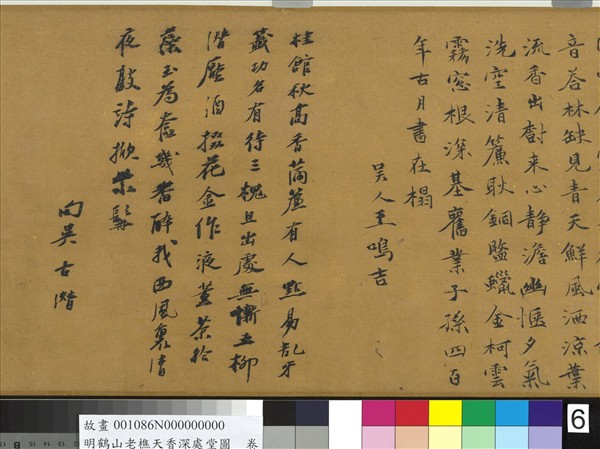 音答林缺見青天鮮風洒涼葉
流香出樹来心靜澹幽愜夕氣
洗空清簾耿銅盤蠟金柯雲
霧窓根深基舊業子孫四百
年古月書在榻
吳人王鳴吉
桂館秋高香滿有人點易乱牙
籖功名有待三槐且出處無慚五柳
潛壓酒掇花金作液薰茶拾
蘂玉為奩幾番醉我西風裏清
夜敲詩撚紫髯
句吳古潛
故畫 001086N000000000
明鶴山老樵天香深處堂圖 卷
6